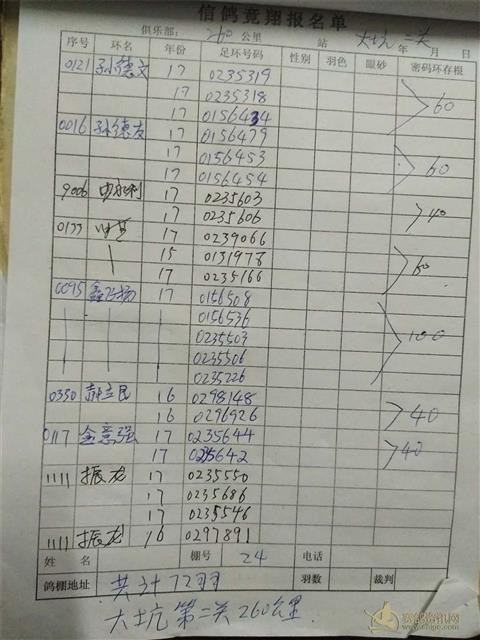 信鸽竞翔报名单
俱乐部: 260 公里 站 大坑 二关 年 月 日
序号 环名 年份 足环号码 性别 羽色 眼砂 密码环存根
0121 孙德文 17 0235319
17 0235318 60
17 0156434
0016 孙德友 17 0156479
17 0156453 60
17 0156454
9006 17 0235603
17 0235606 40
0133 17 0239066
15 0131978 60
17 0235166
0095 17 0156508
0156536
0235503 100
0235506
0235226
0350 郝立民 16 0298148
16 0296926 40
0117 金意强 17 0235644
17 0235642 40
1111 振龙 17 0235550
17 0235686
17 0235546
1111 振龙 16 0297891
姓名 棚号 24 电话
鸽棚地址 共计72羽 羽数 裁判
大坑 第二关 260公里